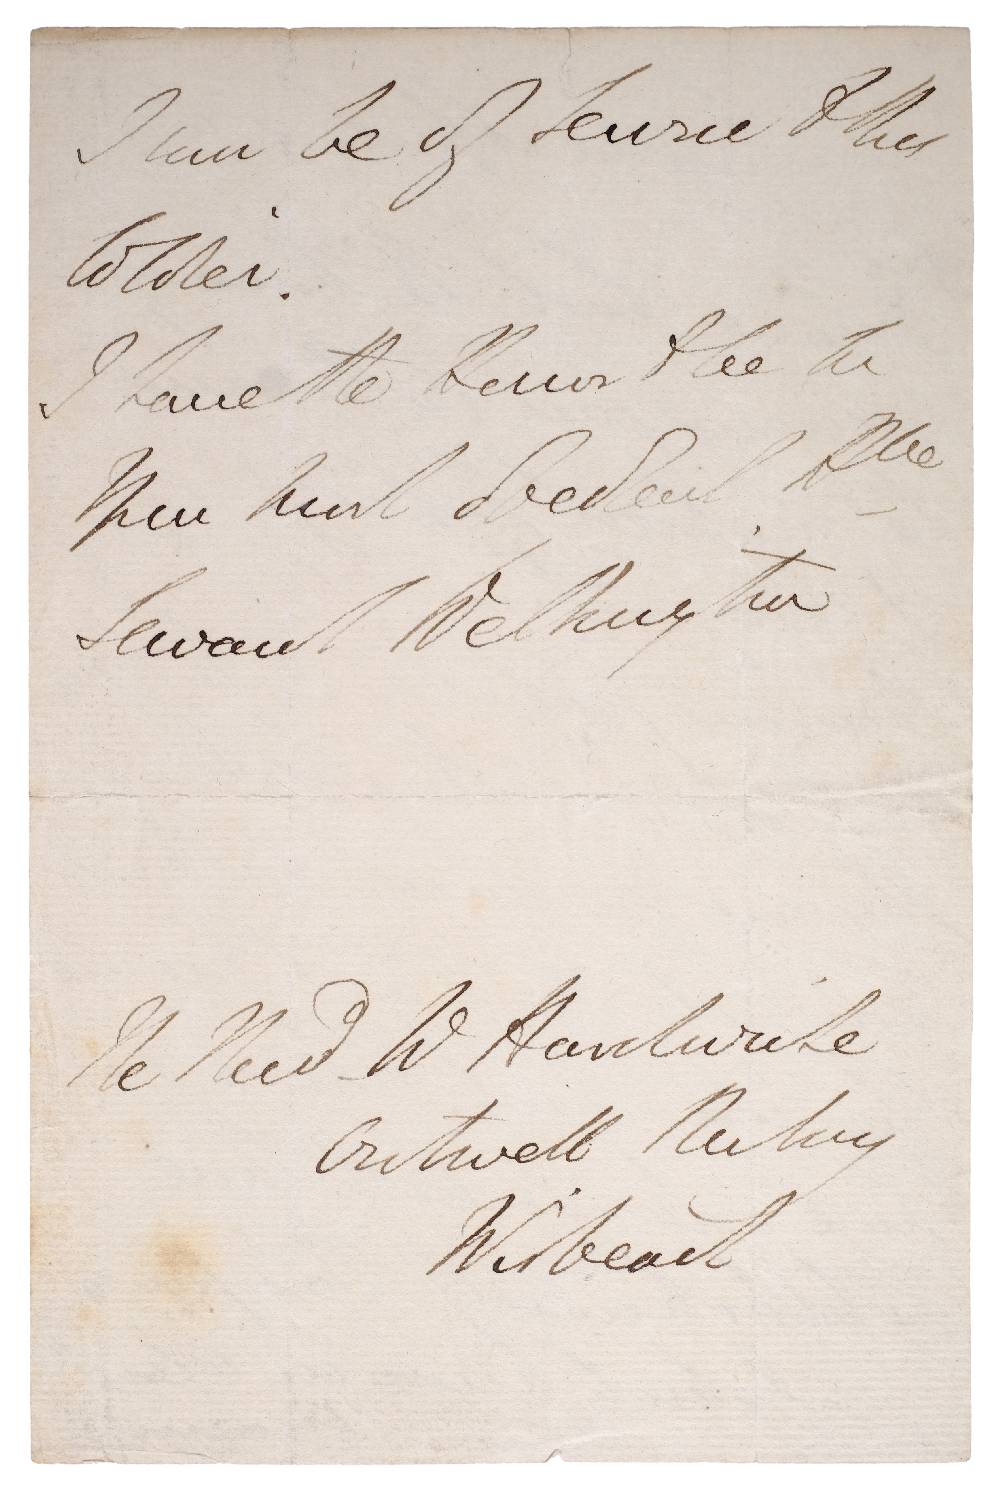 I can be of service to this
Soldier.
I have the Honor to be Sir
Your most obedient Hble
Servant Wellington
The Revd W Hardwicke
Outwell Rectory
Wisbeach